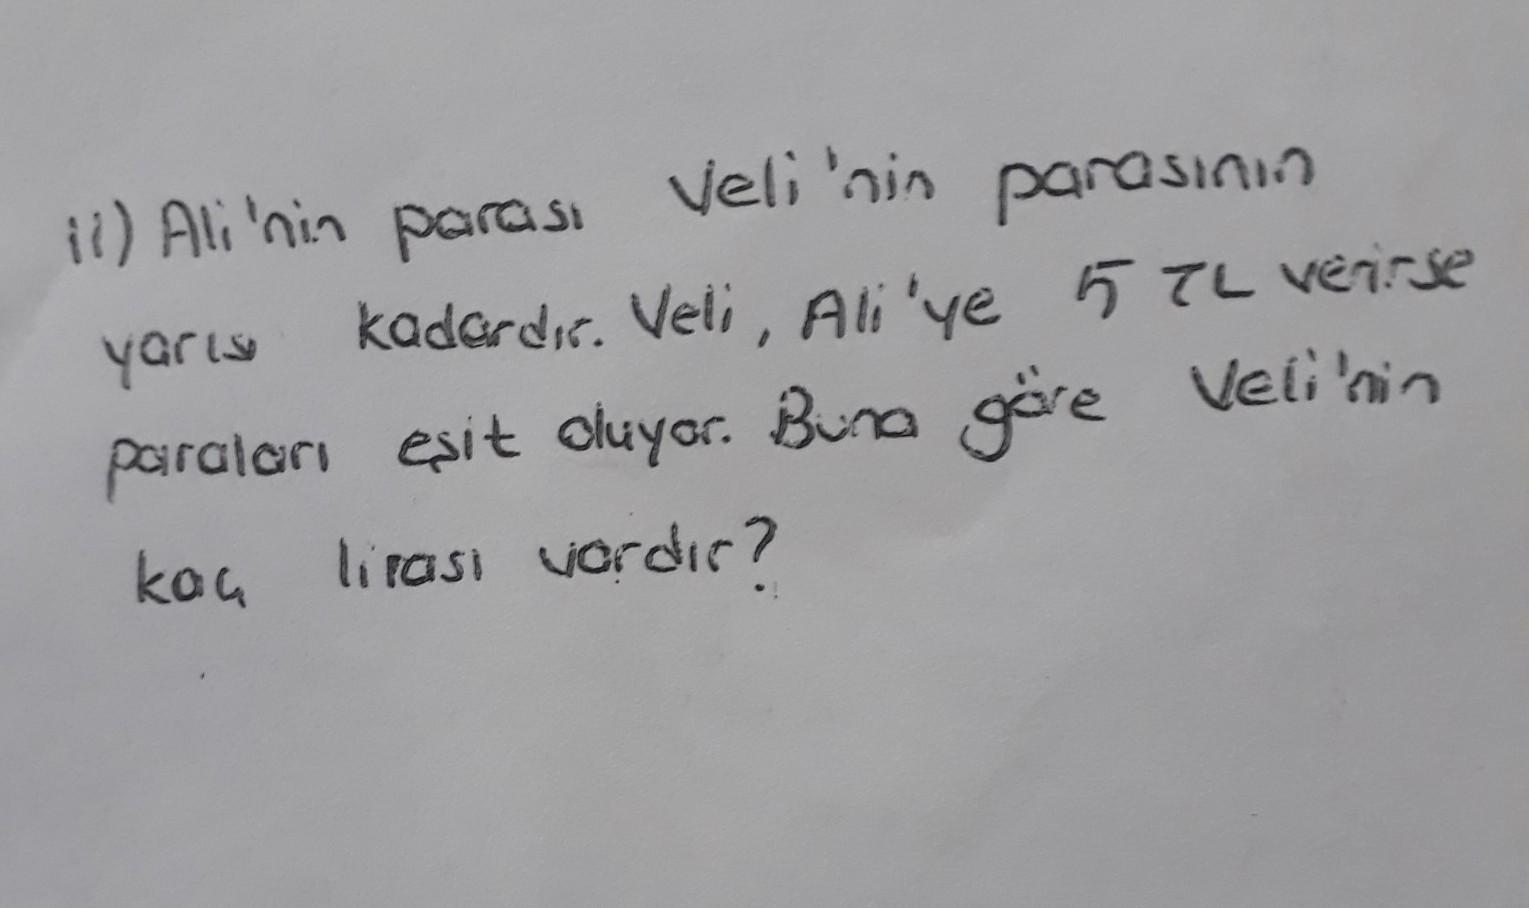 ii) Ali'nin parası Veli'nin parasının
yarısı kadardır. Veli, Ali'ye 5 TL verirse
paraları eşit oluyor. Buna göre Veli'nin
kaç lirası vardır?